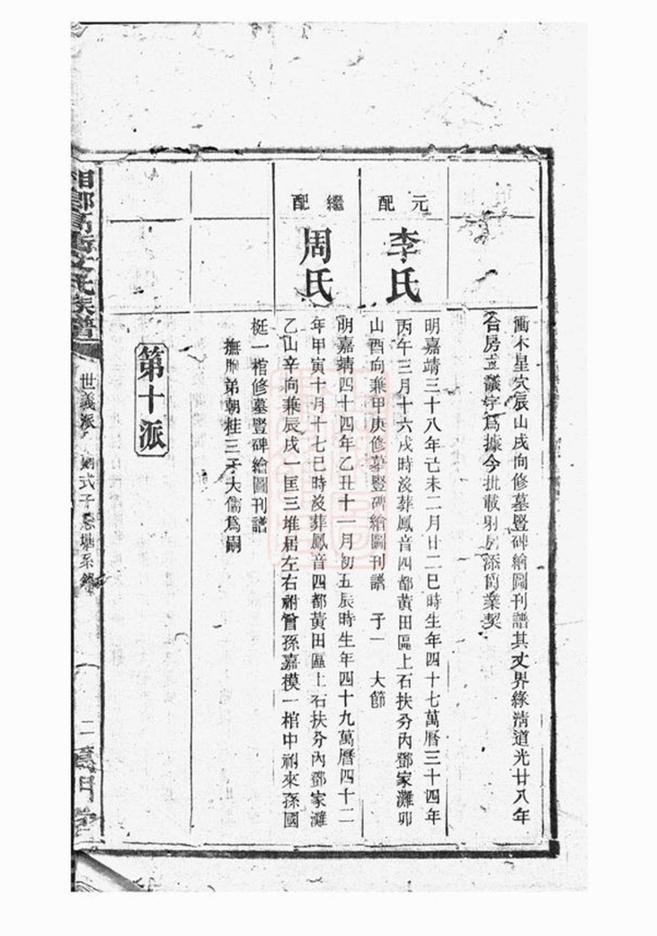 衝木星穴辰山戌向修墓豎碑繪圖刊譜其丈界緣清道光廿八年
合房立議字爲據今批載房添簡業契
元配
李氏
明嘉靖三十八年己未二月廿二巳時生年四十七萬曆三十四年
丙午三月十六戌時沒葬鳳音四都黃田區上石扶分內鄧家灘卯
山酉向兼甲庚修墓豎碑繪圖刊譜 子一 大節
繼配
周氏
明嘉靖四十四年乙丑十一月初五辰時生年四十九萬曆四十二
年甲寅十月十七巳時沒葬鳳音四都黃田區上石扶分內鄧家灘
乙山辛向兼辰戌一匡三堆居左右祔曾孫嘉模一棺中祔來孫國
梃一棺修墓豎碑繪圖刊譜
撫胞弟朝桂三子大儒爲嗣
第十派
氏族譜
世義派
式子系
二